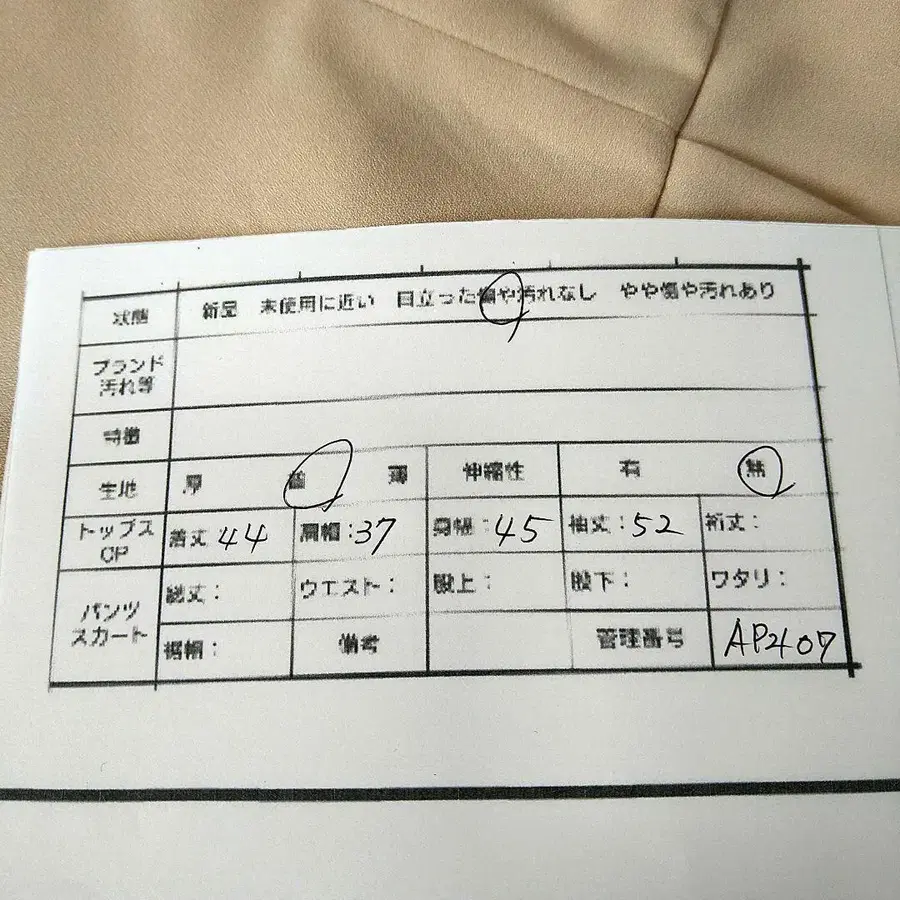 状態 新品 未使用に近い 目立った傷や汚れなし やや傷や汚れあり
ブランド
汚れ等
特徴
生地 厚 普 薄 伸縮性 有 無
トップス
OP
着丈 44 肩幅:37 身幅:45 袖丈:52 裄丈:
パンツ
スカート
総丈: ウエスト: 股上: 股下: ワタリ:
裾幅: 備考 管理番号 AP2407